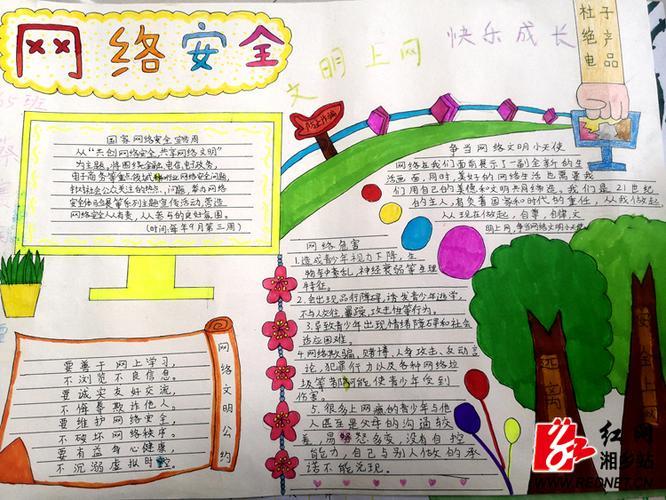 网络安全
文明上网
快乐成长
杜绝电子产品
国家网络安全宣传周
从“共创网络安全,共享网络文明”
为主题,将围绕金融,电信,电子政务,
电子商务等重点领域和行业网络安全问题,
针对社会公众关注的热点、问题,举办网络
安全体验展等系列主题宣传活动,营造
网络安全人人有责,人人参与的良好氛围。
(时间:每年9月第三周)
争当网络文明小天使
网络在我们面前展示了一副全新的生
活画面,同时,美好的网络生活也需要我
们用自己的美德和文明共同缔造。我们是21世纪
的主人,肩负着国家和时代的重任,从我做起,
从现在做起,自尊,自律,文
明上网,争当网络文明小天使
网络危害
1.造成青少年视力下降,生
物钟紊乱,神经衰弱等生理
特征。
2.会出现品行障碍,诱发青少年逃学,
不与人交往,暴躁,攻击性等行为。
3.导致青少年出现情绪障碍和社会
适应困难。
4.网络欺骗,赌博,人身攻击、反动言
论,犯罪行为以及各种网络垃
圾等都可能使青少年受到
伤害。
5.很多上网瘾的青少年与他
人甚至是父母的沟通较
差,易怒多变,没有自控
能力,自己与别人做的承
诺不能兑现。
网络文明公约
要善于网上学习,
不浏览不良信息。
要诚实友好交流,
不侮辱欺诈他人。
要维护网络安全,
不破坏网络秩序。
要有益身心健康,
不沉溺虚拟时空。
远离
安全上网
红网
湘乡站
WWW.REDNET.CN